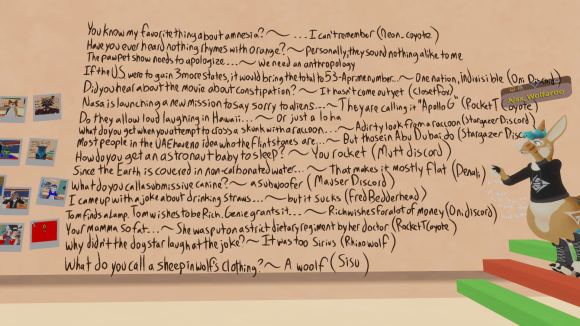 You know my favorite thing about amnesia?~ ...I can't remember (Neon_coyote)
Have you ever heard nothing rhymes with orange?~ Personally, they sound nothing alike to me
The pawpet show needs to apologize...~ we need an anthropology
If the US were to gain 3 more states, it would bring the total to 53-A prime number...~ One nation, indivisible (Oni Discord)
Did you hear about the movie about constipation?~ It hasn't come out yet (Closetfox)
Nasa is launching a new mission to say sorry to aliens...~ They are calling it "Apollo G" (RocketT Coyote)
Do they allow loud laughing in Hawaii...~ Or just a low ha
What do you get when you attempt to cross a skunk with a raccoon...~ A dirty look from a raccoon (Stargazer Discord)
Most people in the UAE have no idea who the Flintstones are...~ But those in Abu Dubai do (Stargazer Disco
How do you get an astronaut baby to sleep?~ You rocket (Mutt discord)
Since the Earth is covered in non-carbonated water...~ That makes it mostly flat (Denali)
What do you call a submissive canine?~ a subwoofer (Mauser Discord)
I came up with a joke about drinking straws...~ but it sucks (Fred Bedderhead)
Tom finds a lamp. Tom wishes to be Rich. Genie grants it...~ Rich wishes for a lot of money (Oni discord)
Your mamma so fat...~ She was put on a strict dietary regiment by her doctor (RocketTCoyote)
Why didn't the dog star laugh at the joke?~ It was too Sirius (Rhinowolf)
What do you call a sheep in wolf's clothing?~ A woolf (Sisu)